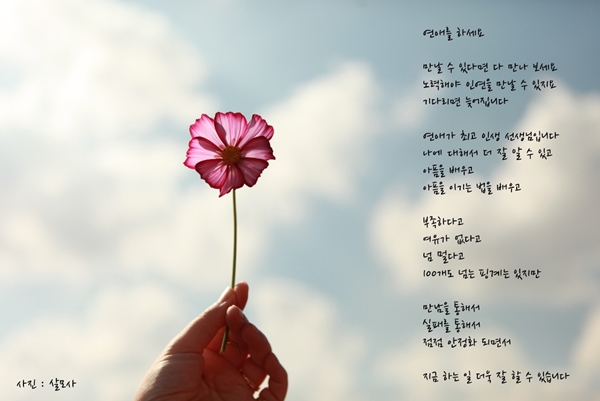 연애를 하세요
만날 수 있다면 다 만나 보세요
노력해야 인연을 만날 수 있지요
기다리면 늦어집니다
연애가 최고 인생 선생님입니다
나에 대해서 더 잘 알 수 있고
아픔을 배우고
아픔을 이기는 법을 배우고
부족하다고
여유가 없다고
넘 멀다고
100개도 넘는 핑계는 있지만
만남을 통해서
실패를 통해서
점점 안정화 되면서
지금 하는 일 더욱 잘 할 수 있습니다
사진 : 살모사